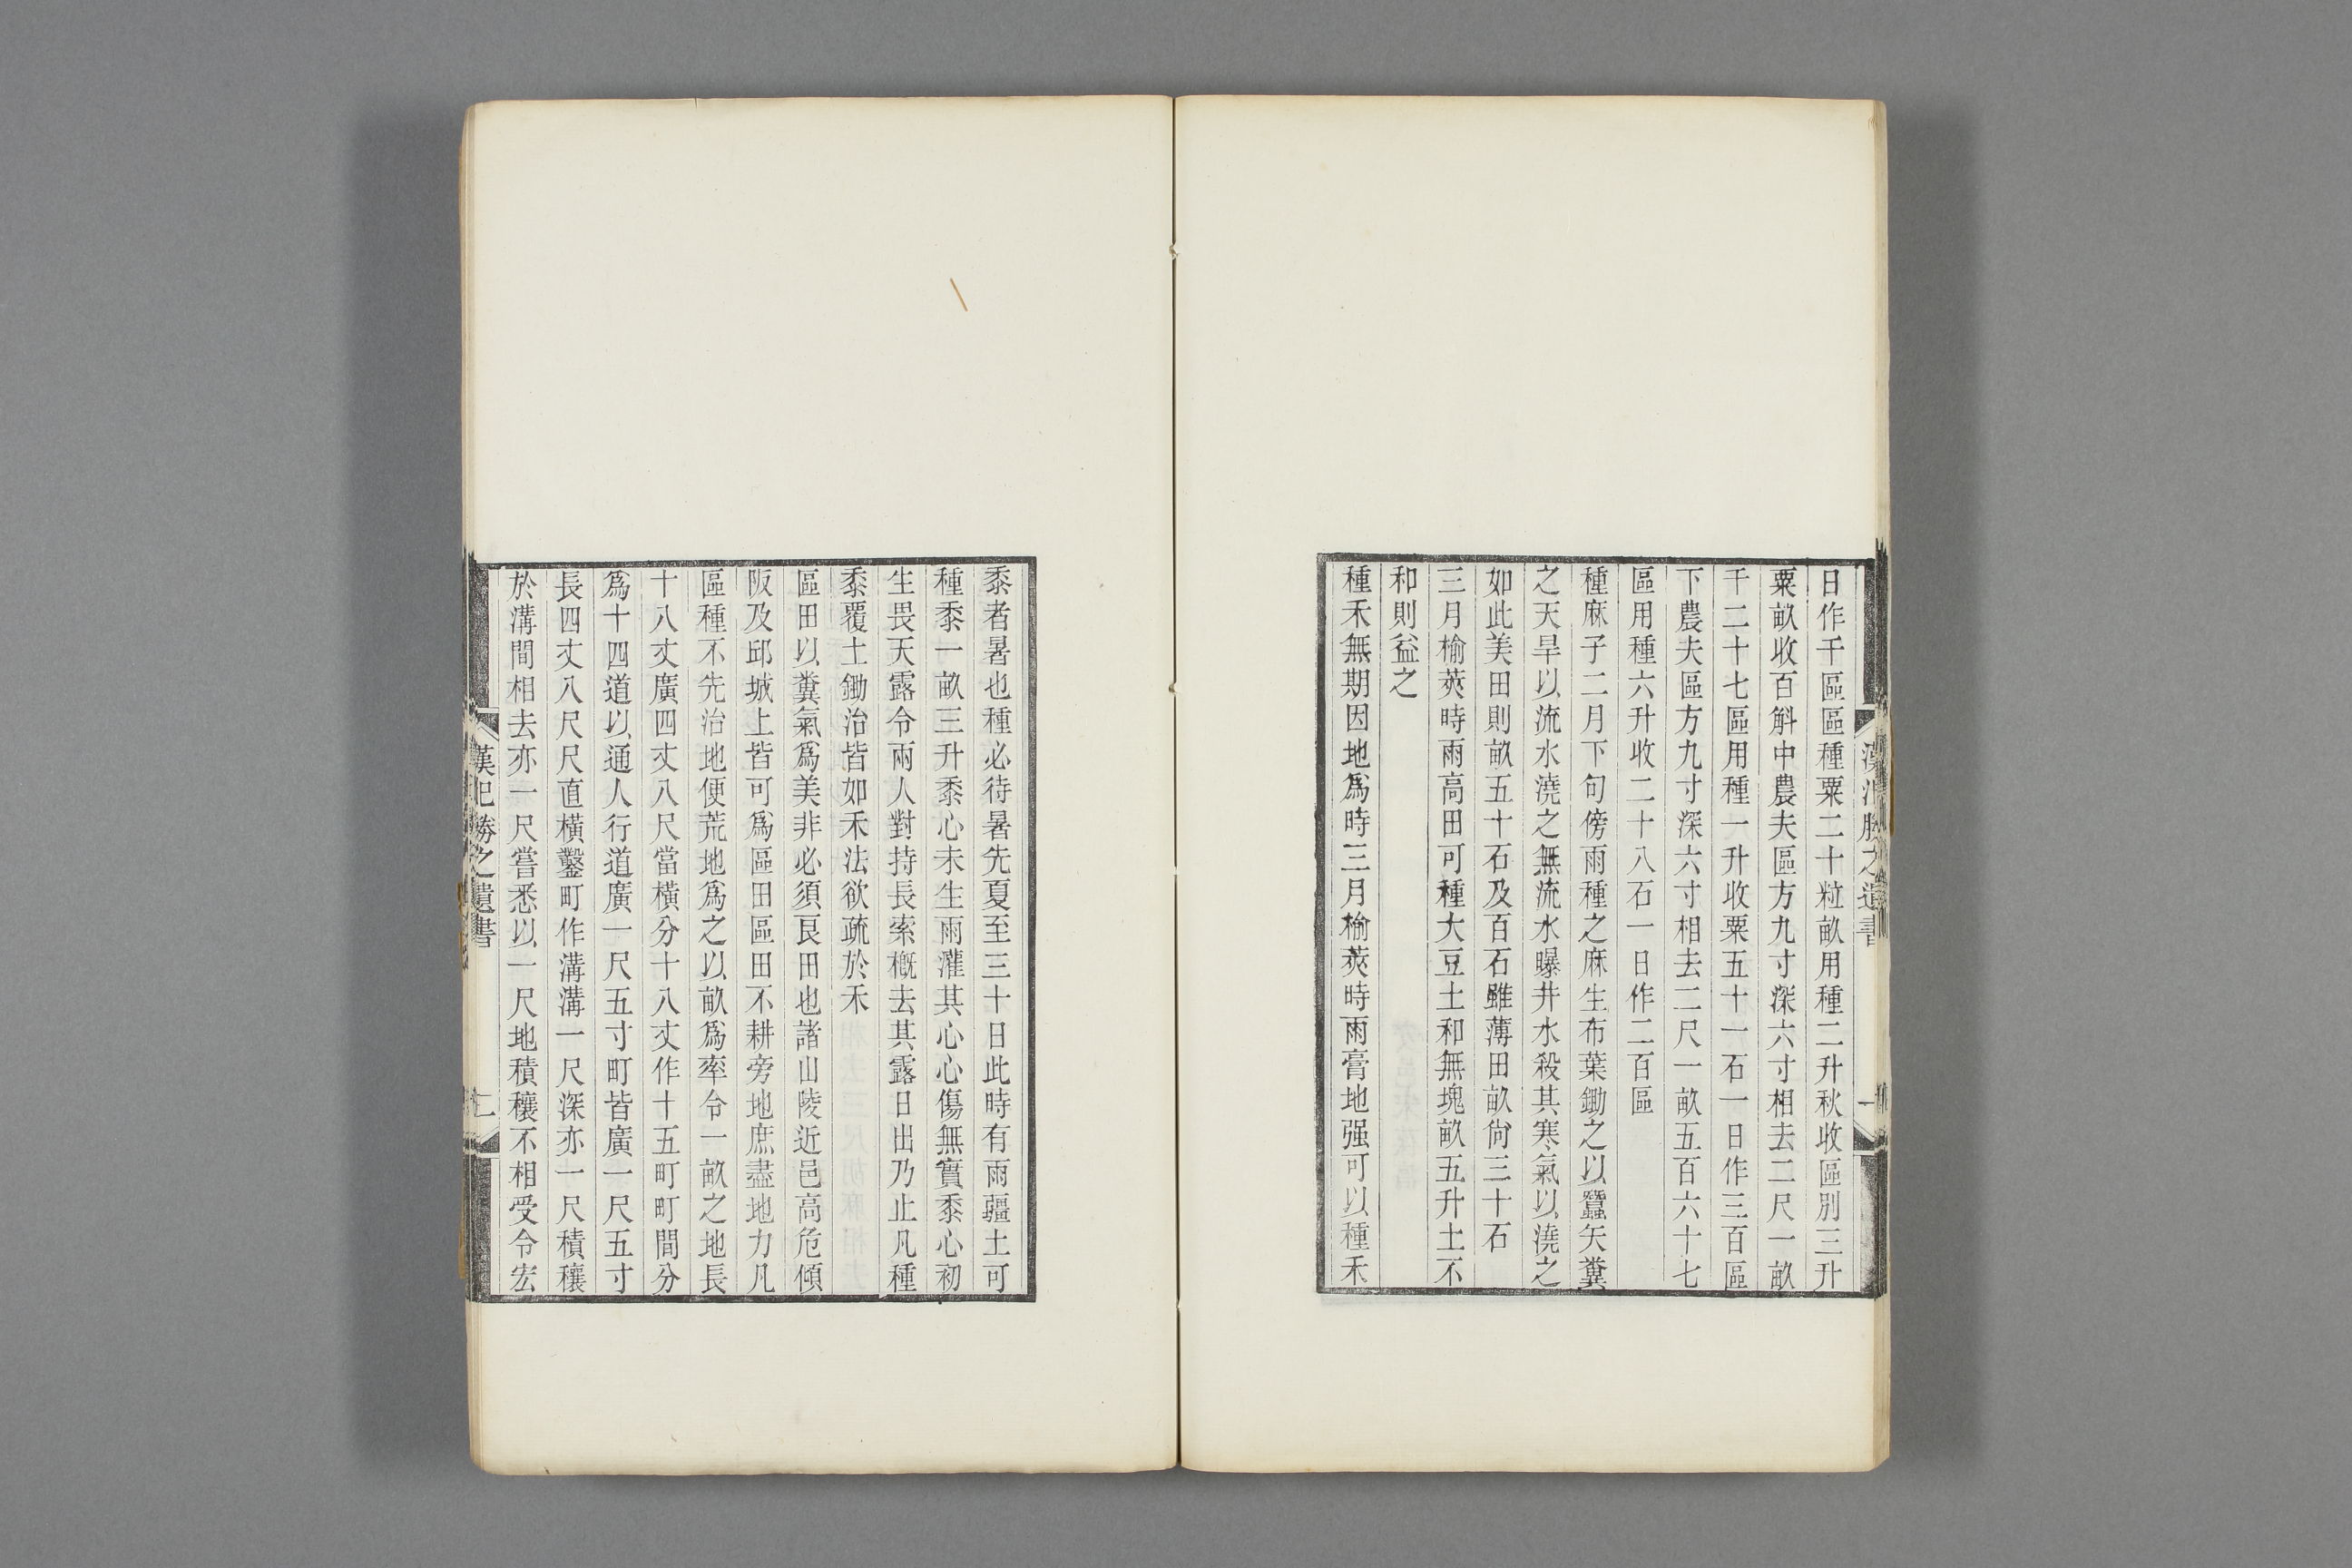 日作千區區種粟二十粒畝用種二升秋收區別三升
粟畝收百斛中農夫區方九寸深六寸相去二尺一畝
千二十七區用種一升收粟五十一石一日作三百區
下農夫區方九寸深六寸相去二尺一畝五百六十七
區用種六升收二十八石一日作二百區
種麻子二月下旬傍雨種之麻生布葉鋤之以蠶矢糞
之天旱以流水澆之無流水曝井水殺其寒氣以澆之
如此美田則畝五十石及百石雖薄田畝尙三十石
三月榆莢時雨高田可種大豆土和無塊畝五升土不
和則益之
種禾無期因地爲時三月榆莢時雨膏地强可以種禾
黍者暑也種必待暑先夏至三十日此時有雨疆土可
種黍一畝三升黍心未生雨灌其心心傷無實黍心初
生畏天露令兩人對持長索槪去其露日出乃止凡種
黍覆土鋤治皆如禾法欲疏於禾
區田以糞氣爲美非必須良田也諸山陵近邑高危傾
阪及邱城上皆可爲區田區田不耕旁地庶盡地力凡
區種不先治地便荒地爲之以畝爲率令一畝之地長
十八丈廣四丈八尺當橫分十八丈作十五町町間分
爲十四道以通人行道廣一尺五寸町皆廣一尺五寸
長四丈八尺尺直橫鑿町作溝溝一尺深亦一尺積穰
於溝間相去亦一尺嘗悉以一尺地積穰不相受令宏
漢氾勝之遺書
二